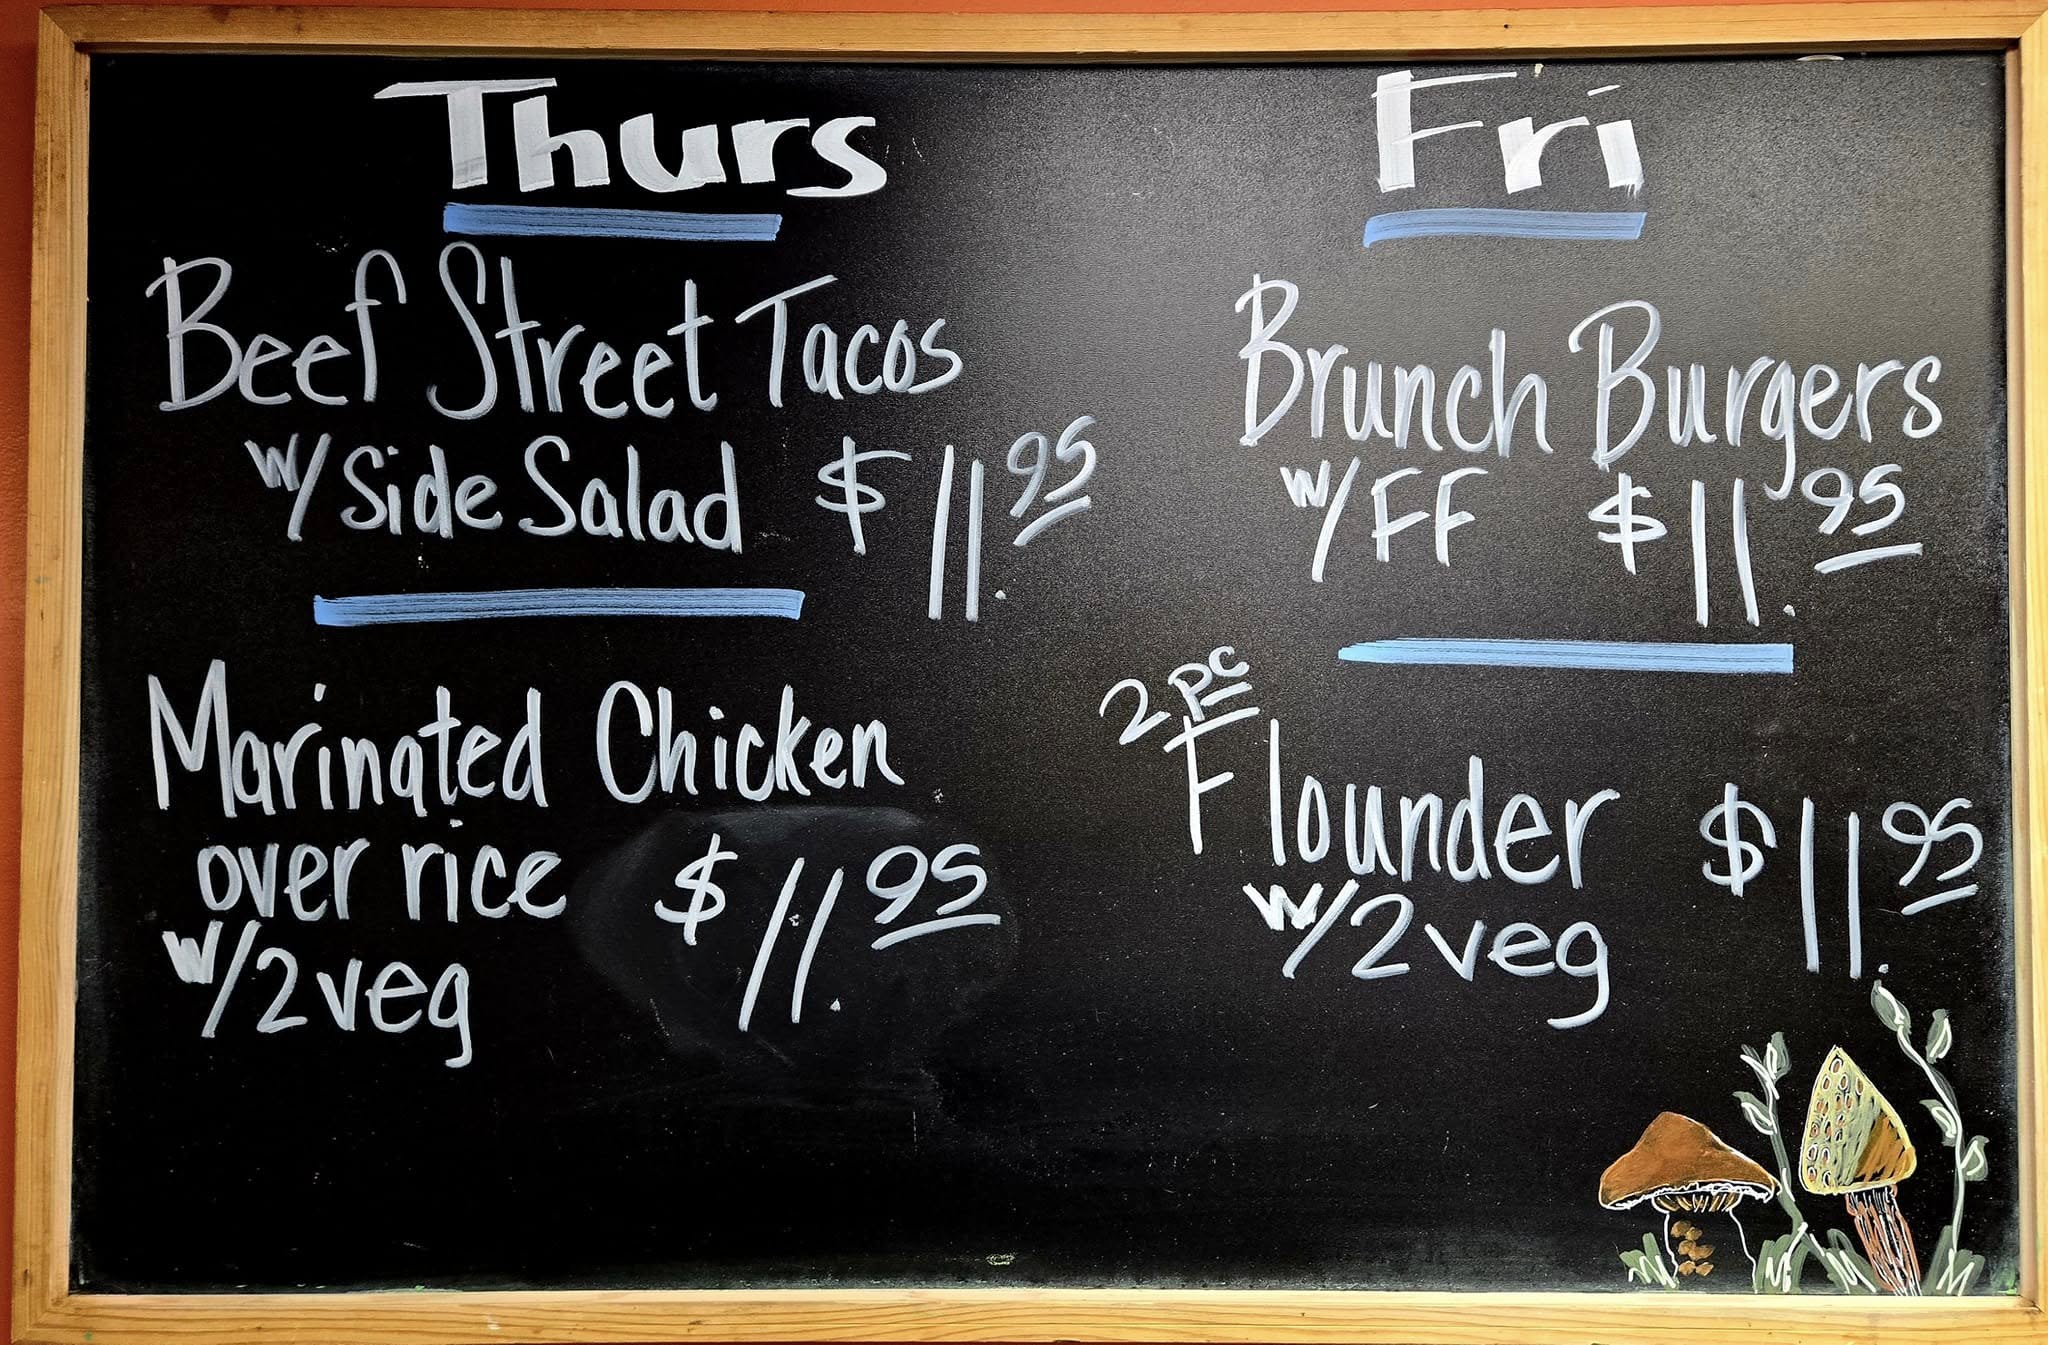 Thurs
Beef Street Tacos
w/Side Salad $11.95
Marinated Chicken
over rice $11.95
w/2veg
Fri
Brunch Burgers
w/FF $11.95
2pc
Flounder $11.95
w/2veg